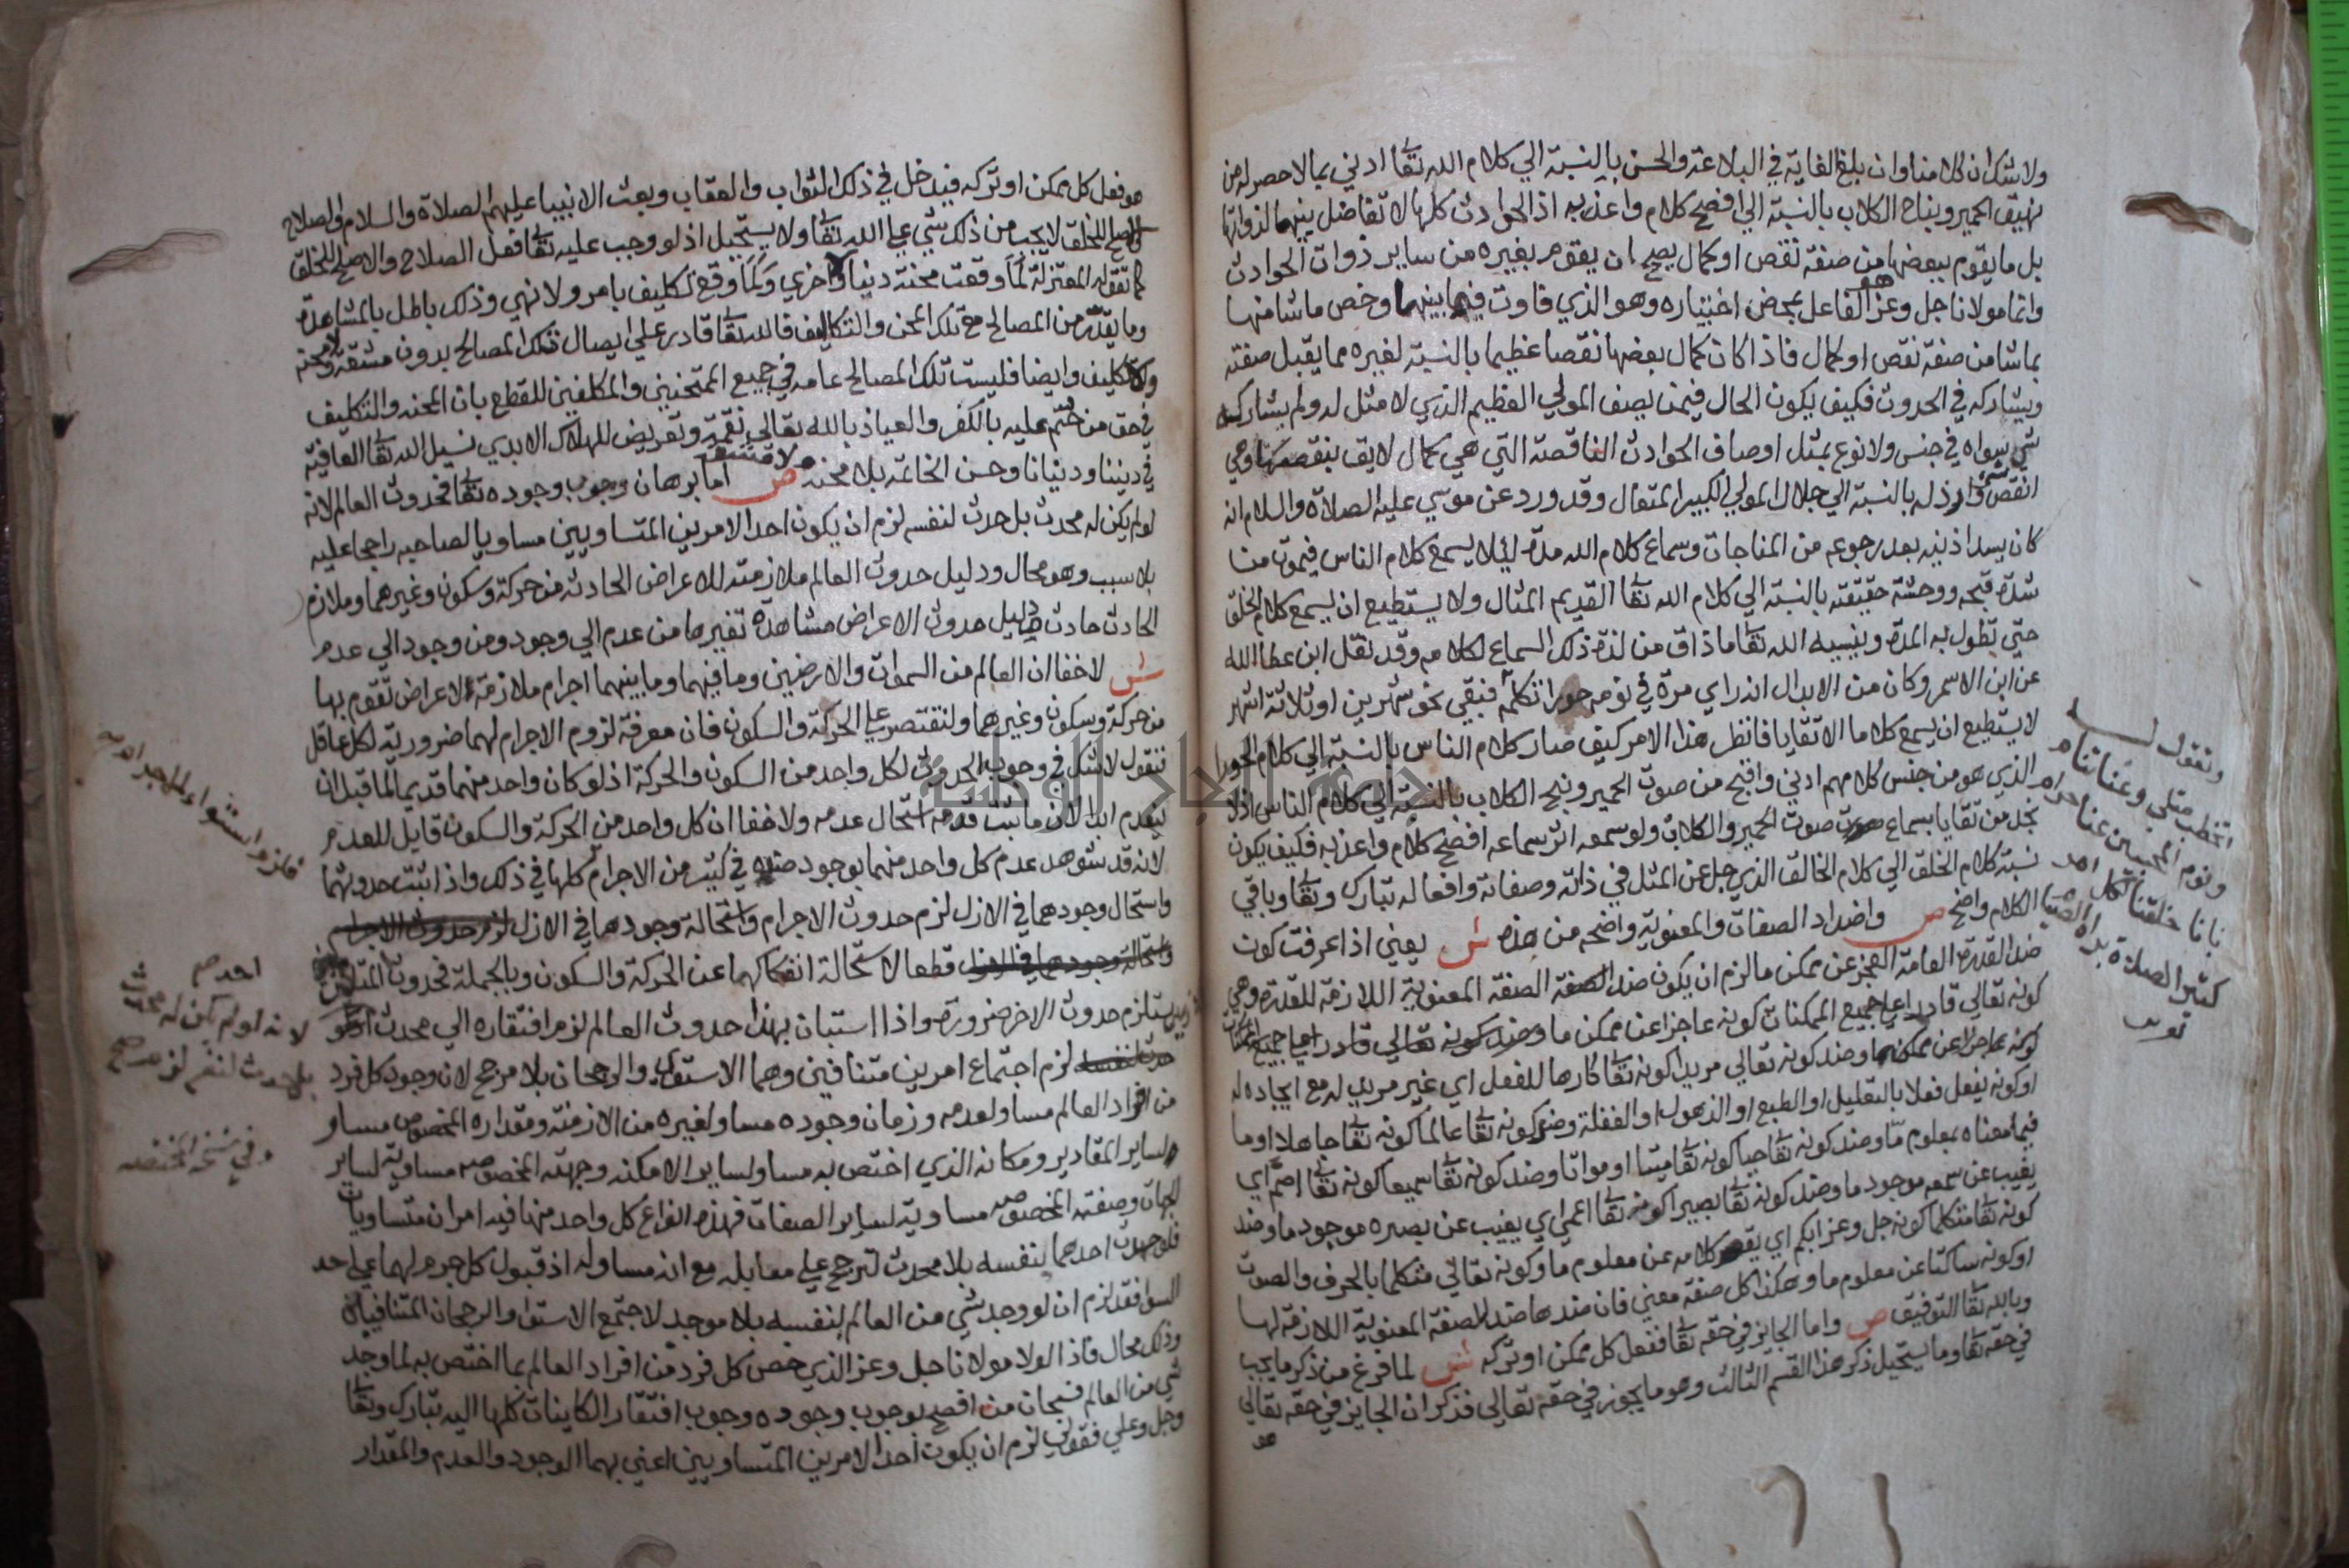 ولا شك ان كلامنا وان بلغ الغاية في البلاغة والحسن بالنسبة الي كلام الله تعا ادني بما لا حصر له من
نهيق الحمير ونباح الكلاب بالنسبة الي افصح كلام واعذبه اذ الحوادث كلها لا تفاضل بينها لذواتها
بل ما يقوم ببعضها من صفة نقص او كمال يصح ان يقوم بغيره من ساير ذوات الحوادث
وانما مولانا جل وعز هو الفاعل بمحض اختياره وهو الذي فاوت فيما بينهما وخص ما شا منها
بما شا من صفة نقص او كمال فاذا كان كمال بعضها نقصا عظيما بالنسبة لغيره مما يقبل صفته
ويشاركه في الحدوث فكيف يكون الحال فيمن يصف المولي العظيم الذي لا مثل له ولم يشاركه
شي سواه في جنس ولا نوع بمثل اوصاف الحوادث الناقصة التي هي كمال لايق بنقصها وهي
انقص شي وارذله بالنسبة الي جلال المولي الكبير المتعال وقد ورد عن موسي عليه الصلاة والسلام انه
كان يسد اذنيه بعد رجوعه من المناجات وسماع كلام الله مدة ليلا يسمع كلام الناس فيموت من
شدة قبحه ووحشة حقيقته بالنسبة الي كلام الله تعا القديم المثال ولا يستطيع ان يسمع كلام الخلق
حتي تطول به المدة وينسيه الله تعا ما ذاق من لذة ذلك السماع لكلامه وقد نقل ابن عطا الله
عن ابن الاسمر وكان من الابدال انه راي مرة في نومه حورا تكلمه فبقي نحو شهرين او ثلاثة اشهر
لا يستطيع ان يسمع كلاما الا تقايا فانظر هذا الامر كيف صار كلام الناس بالنسبة الي كلام الحورا
الذي هو من جنس كلامهم ادني واقبح من صوت الحمير ونبح الكلاب بالنسبة الي كلام الناس اذ لا
نجد من تقايا بسماع صوت الحمير والكلاب ولو سمعه اثر سماعه افصح كلام واعذبه فكيف يكون
نسبة كلام الخلق الي كلام الخالق الذي جل عن المثل في ذاته وصفاته وافعاله تبارك وتعا وباقي
الكلام واضح ص واضداد الصفات المعنوية واضحه من هذه ش يعني اذا عرفت كون
ضد القدرة العامة العجز عن ممكن ما لزم ان يكون ضد الصفة المعنوية اللازمة للقدرة وهي
كونه تعالي قادرا علي جميع الممكنات كونه عاجزا عن ممكن ما وضد كونه تعالي قادر علي جميع
كونه عاجزا عن ممكن ما وضد كونه تعالي مريدا كونه تعا كارها للفعل اي غير مريد له مع ايجاده له
او كونه يفعل فعلا بالتعليل او الطبع او الذهول او الغفلة وضد كونه تعا عالما كونه تعا جاهلا او ما
فيما معناه بمعلوم ما وضد كونه تعا حيا كونه تعا ميتا او مواتا وضد كونه تعا سميعا كونه تعا اصم اي
يغيب عن سمعه موجود ما وضد كونه تعا بصيرا كونه تعا اعمي اي يغيب عن بصره موجود ما وضد
كونه تعا متكلما كونه جل وعز ابكم اي كلامه عن معلوم ما وكونه تعالي متكلما بالحرف والصوت
او كونه ساكتا عن معلوم ما وهكذا كل صفة معني فان ضدها ضد للصفة المعنوية اللازمة لها
وبالله تعا التوفيق ص واما الجايز في حقه تعا ففعل كل ممكن او تركه ش لما فرغ من ذكر ما يجب
في حقه تعا وما يستحيل ذكر هذا القسم الثالث وهو ما يجوز في حقه تعالي فذكر ان الجايز في حقه تعالي
هو
هو فعل كل ممكن او تركه فيدخل في ذلك الثواب والعقاب وبعث الانبيا عليهم الصلاة والسلام والصلاح
والاصلح للخلق لا يجب من ذلك شي علي الله تعا ولا يستحيل اذ لو وجب عليه تعا فعل الصلاح والاصلح للخلق
كما تقوله المعتزلة لما وقعت محنة دنيا واخري ولما وقع تكليف بامر ولا نهي وذلك باطل بالمشاهدة
وما يقدر من المصالح مع تلك المحن والتكاليف فالله تعا قادر علي ايصال تلك المصالح بدون مشقة ومحنة
ولا تكليف وايضا فليست تلك المصالح عامه في جميع الممتحنين والمكلفين للقطع بان المحنه والتكليف
في حق من ختم عليه بالكفر والعياذ بالله تعالي نقمة وتعريض للهلاك الابدي نسيل الله تعا العافية
في ديننا ودنيانا وحسن الخاتمه بلا محنة ولا مشقة ص اما برهان وجوب وجوده تعا فحدوث العالم لانه
لو لم يكن له محدث بل حدث لنفسه لزم ان يكون احد الامرين المتساويين مساويا لصاحبه راجحا عليه
بلا سبب وهو محال ودليل حدوث العالم ملازمته للاعراض الحادثة من حركة وسكون وغيرهما وملازم
الحادث حادث ودليل حدوث الاعراض مشاهدة تغيرها من عدم الي وجود ومن وجود الي عدم
ش لا خفا ان العالم من السموات والارضين وما فيهما وما بينهما اجرام ملازمة لاعراض تقوم بها
من حركة وسكون وغيرهما ولنقتصر علي الحركة والسكون فان معرفة لزوم الاجرام لهما ضرورية لكل عاقل
فنقول لا شك في وجوب الحدوث لكل واحد من السكون والحركة اذ لو كان واحد منهما قديما لما قبل ان
ينعدم ابدا لان ما ثبت قدمه استحال عدمه ولا خفا ان كل واحد من الحركة والسكون قابل للعدم
لانه قد شوهد عدم كل واحد منهما بوجود ضده في كثير من الاجرام كلها في ذلك واذا ثبت حدوثهما
واستحال وجودهما في الازل لزم حدوث الاجرام واستحالة وجودهما في الازل لزم حدوث الاجرام
واستحالة وجودهما في الازل قطعا لاستحالة انفكاكهما عن الحركة والسكون وبالجملة فحدوث
يستلزم حدوث الاخر ضرورة واذا استبان بهذا حدوث العالم لزم افتقاره الي محدث
لزم اجتماع امرين متنافين وهما الاستوي والرجحان بلا مرجح لان وجود كل فرد
من افراد العالم مساو لعدمه وزمان وجوده مساو لغيره من الازمنة ومقداره المخصوص مساو
لساير المقادير ومكانه الذي اختص به مساو لساير الامكنه وجهته المخصوصه مساوية لساير
الجهات وصفته المخصوصه مساوية لساير الصفات فهذه انواع كل واحد منها فيه امران متساويان
فلو حدث احدهما بنفسه بلا محدث لترجح علي مقابله مع انه مساو له اذ قبول كل جرم لهما علي حد
السوا فقد لزم ان لو وجد شي من العالم لنفسه بلا موجد لاجتمع الاستوا والرجحان المتنافيان
وذلك محال فاذا لولا مولانا جل وعز الذي خص كل فرد من افراد العالم بما اختص به لما وجد
شي من العالم فسبحان من افصح بوجوب وجوده وجوب افتقار الكاينات كلها اليه تبارك وتعا
وجل وعلي فقولي لزم ان يكون احد الامرين المتساويين اعني بهما الوجود والعدم والمقدار
احد صح
لانه لو لم يكن له محدث